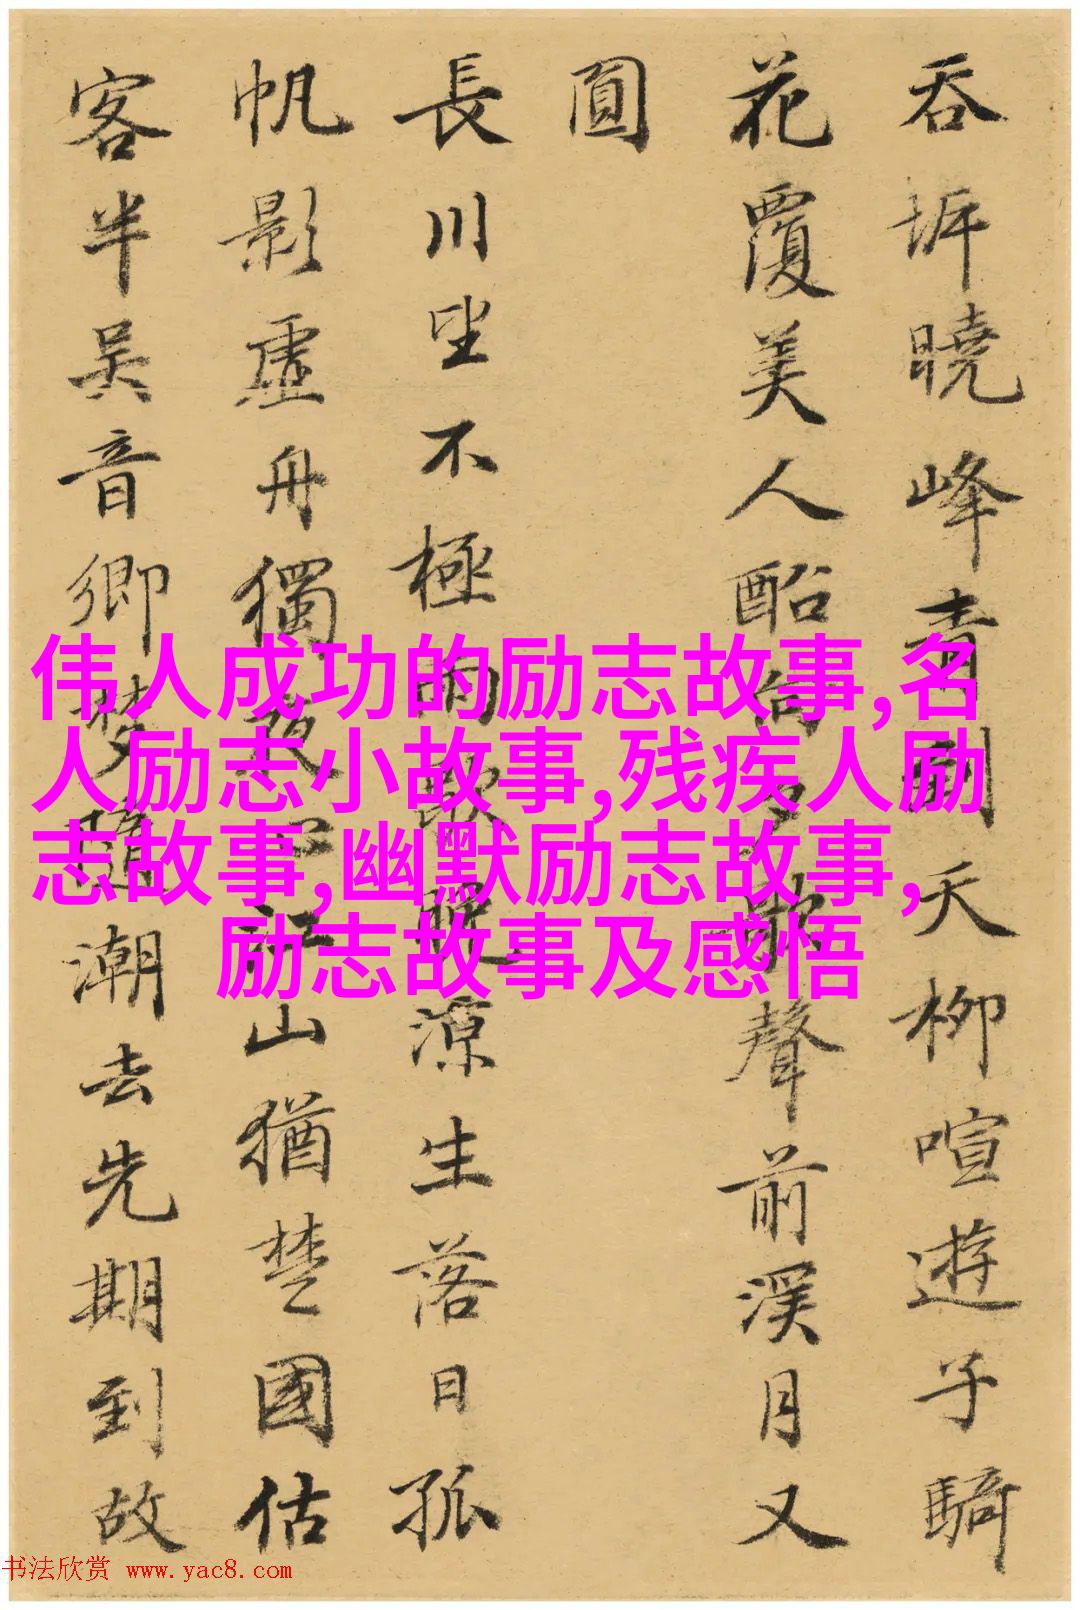 吞坼曉峰青削天柳喧遊子騎
花覆美人酩向夕歌聲前溪月又
圓
長川坐不極向歇暝凉生落日孤
帆影虛舟獨夜心江山猶楚國估
客半吴音鄉梦随潮去先期到故
伟人成功的励志故事,名
人励志小故事,残疾人励
志故事,幽默励志故事,
励志故事及感悟
书法欣赏 www.yac8.com